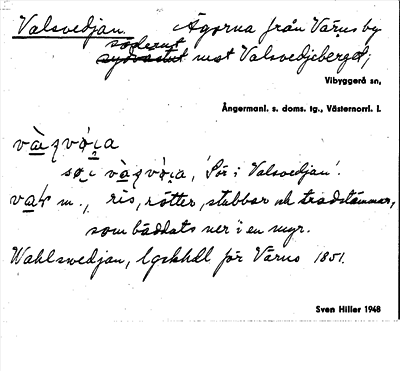 Valsvedjan. Ägorna från Värns by
söderut
sydvästut mot Valsvedjeberget;
Vibyggerå sn,
Ångermanl. s. doms. tg., Västernorrl. l.
'Sör i Valsvedjan'.
m., ris, rötter, stubbar och trädstammar,
som bäddats ner i en myr.
Wahlswedjan, lgskhdl för Värns 1851.
Sven Hiller 1948